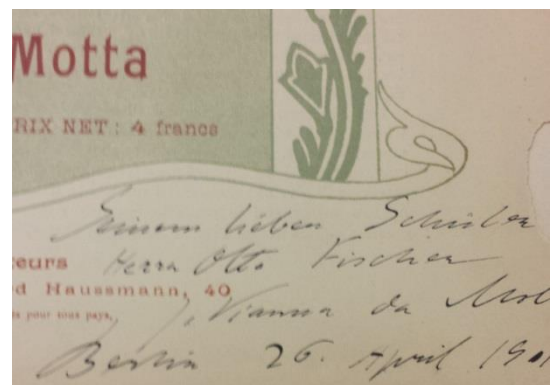 Motta
RIX NET : 4 francs
Seinem lieben Schüler
teurs Herrn Otto Fischer
d Haussmann, 40
s pour tous pays.
J. Vianna da Mot
Berlin 26. April 190